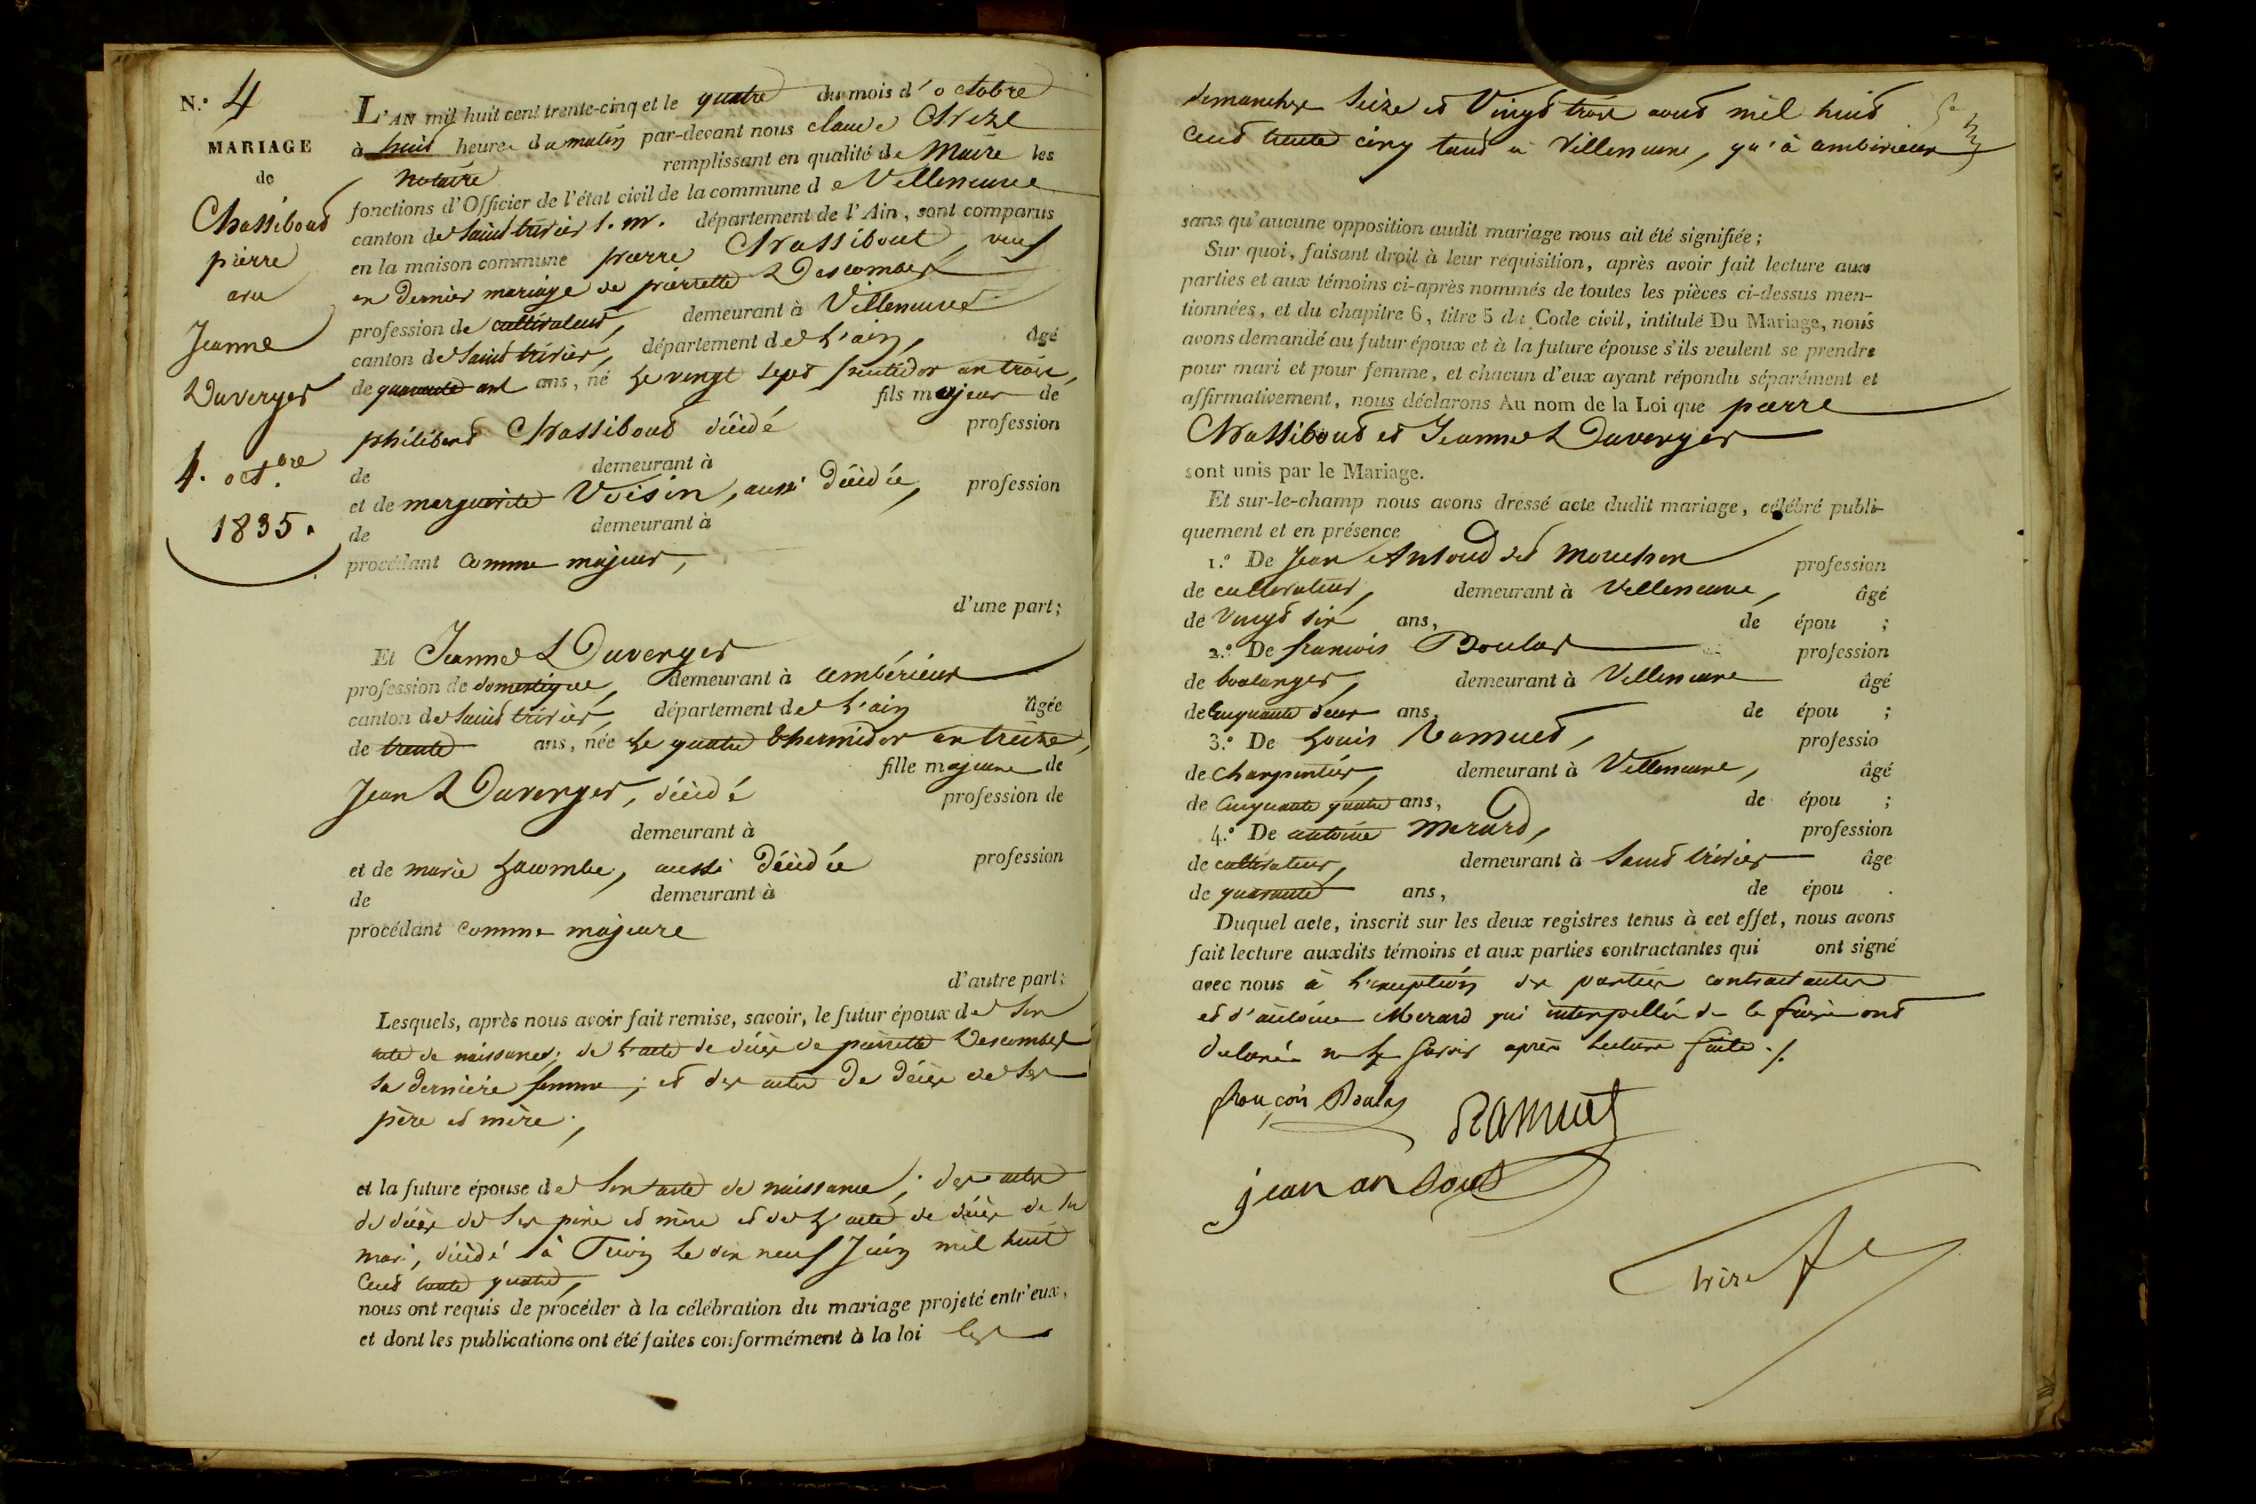 N.° 4
MARIAGE
de
Chassiboud
pierre
avec
Jeanne
Duverger
4. oct.bre
1835.
L'AN mil huit cent trente-cinq et le quatre du mois d'octobre
à huit heures du matin par-devant nous claude
notaire remplissant en qualité de Maire les
fonctions d'Officier de l'état civil de la commune de Villeneuve
canton de Saint trivier s. m. département de l'Ain, sont comparus
en la maison commune pierre Chassibout, veuf
en dernier mariage de pierrette Descombes
profession de cultivateur, demeurant à Villeneuve
canton de Saint trivier, département de L'ain, âgé
de quarante ans, né Le vingt sept fructidor an trois,
fils majeur de
philibert Chassiboud décédé profession
de demeurant à
et de marguerite Voisin, aussi décédée, profession
de demeurant à
procédant comme majeur,
d'une part;
Et Jeanne Duverger
profession de domestique, demeurant à ambérieux
canton de Saint trivier, département de L'ain âgée
de trente ans, née Le quatre thermidor an treize,
fille majeure de
Jean Duverger, décédé profession de
demeurant à
et de marie Lacombe, aussi décédée profession
de demeurant à
procédant comme majeure
d'autre part;
Lesquels, après nous avoir fait remise, savoir, le futur époux de Son
acte de naissance; de L'acte de décès de pierrette Descombes
Sa dernière femme; et des actes De décès de Ses
père et mère;
et la future épouse de Son acte de naissance; des actes
de décès de Ses père et mère et de L'acte de décès de Son
mari, décédé à Le dix neuf Juin mil huit
Cent trente quatre,
nous ont requis de procéder à la célébration du mariage projeté entr'eux,
et dont les publications ont été faites conformément à la loi Les
dimanches Seize et Vingt trois aout mil huit
cent trente cinq tant à Villeneuve, qu'à ambérieux
sans qu'aucune opposition audit mariage nous ait été signifiée;
Sur quoi, faisant droit à leur réquisition, après avoir fait lecture aux
parties et aux témoins ci-après nommés de toutes les pièces ci-dessus men-
tionnées, et du chapitre 6, titre 5 du Code civil, intitulé Du Mariage, nous
avons demandé au futur époux et à la future épouse s'ils veulent se prendre
pour mari et pour femme, et chacun d'eux ayant répondu séparément et
affirmativement, nous déclarons Au nom de la Loi que pierre
Chassiboud et Jeanne Duverger
sont unis par le Mariage.
Et sur-le-champ nous avons dressé acte dudit mariage, célébré publi-
quement et en présence
1.° De Jean Antoud dit Mouchon profession
de cultivateur, demeurant à Villeneuve, âgé
de Vingt six ans, de épou ;
2.° De francois Boulas profession
de boulanger, demeurant à Villeneuve âgé
de Cinquante deux ans, de épou ;
3.° De Louis Ramuet, professio
de Charpentier, demeurant à Villeneuve, âgé
de Cinquante quatre ans, de épou ;
4.° De antoine Merard, profession
de cultivateur, demeurant à Saint trivier âge
de quarante ans, de épou .
Duquel acte, inscrit sur les deux registres tenus à cet effet, nous avons
fait lecture auxdits témoins et aux parties contractantes qui ont signé
avec nous à L'exception des parties contractantes
et d'antoine Merard qui interpellés de le faire ont
déclarés ne Le Savoir après Lecture faite ./.
françois Boulas
Ramuet
jean antoud